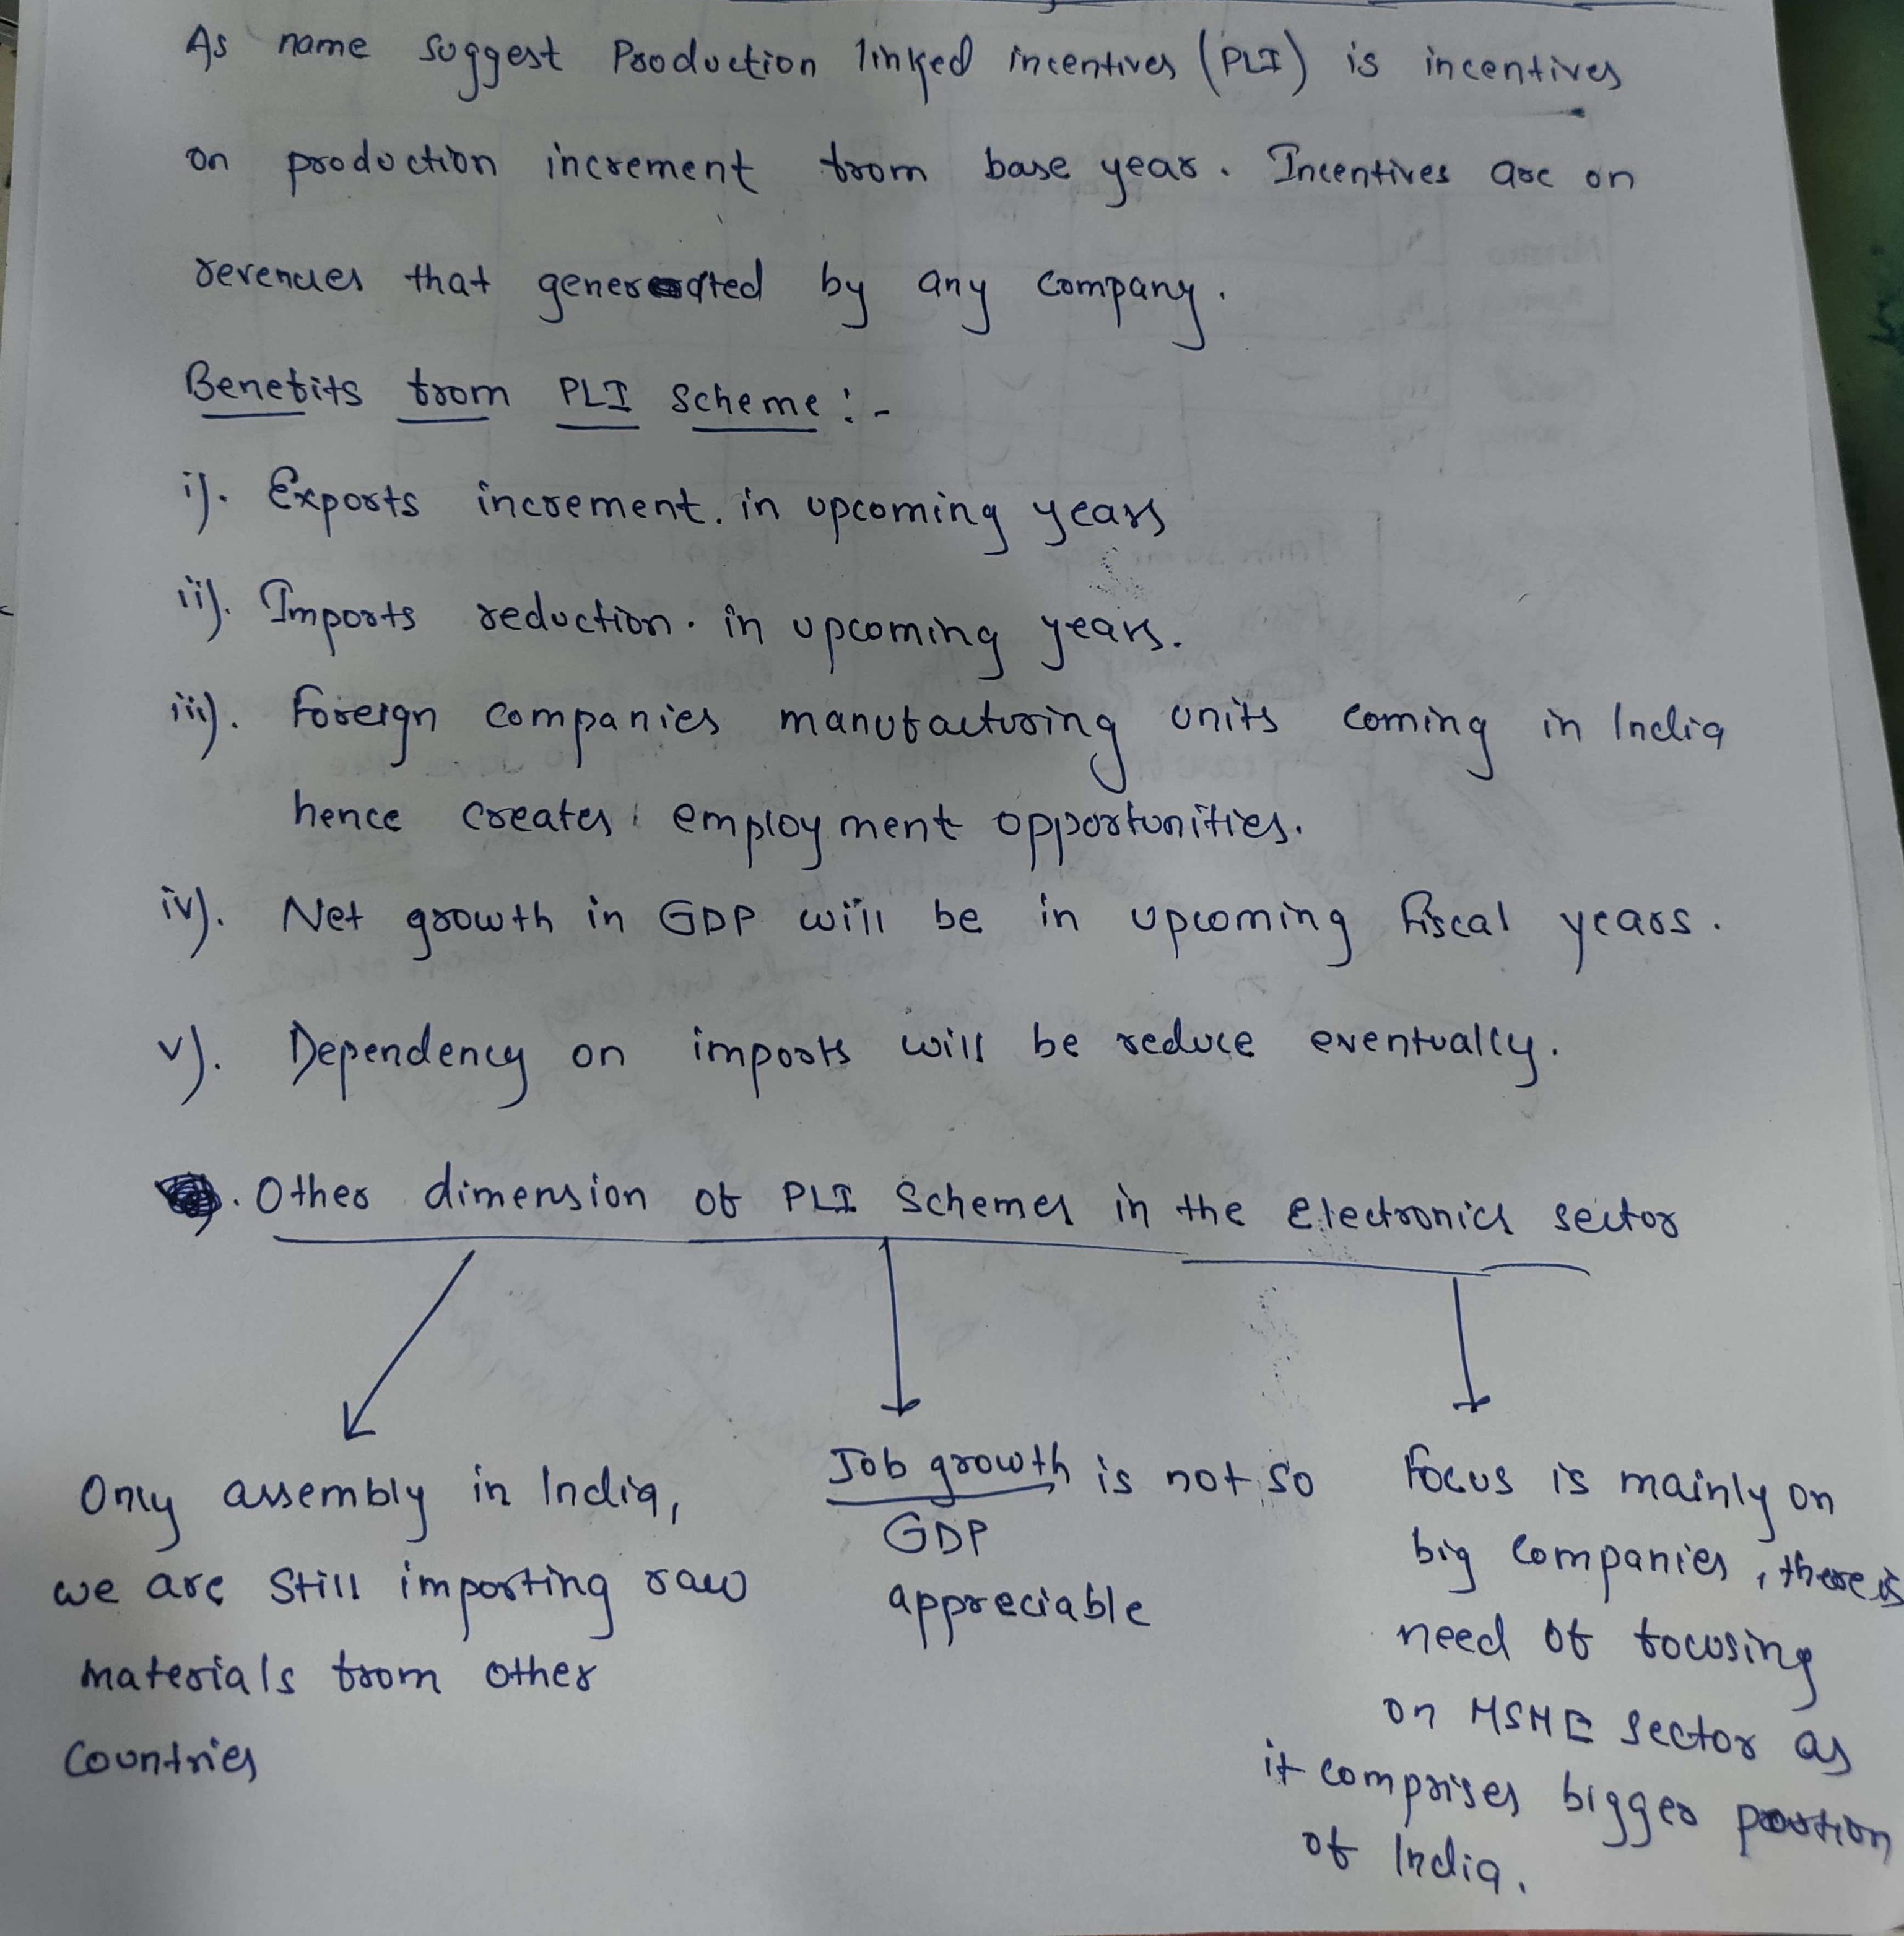 As name suggest Production linked incentives (PLI) is incentives
on production increment from base year. Incentives are on
revenues that generated by any company.
Benefits from PLI scheme :-
i). Exports increment. in upcoming years
ii). Imports reduction. in upcoming years.
iii). Foreign companies manufacturing units coming in India
hence creates employment opportunities.
iv). Net growth in GDP will be in upcoming fiscal years.
v). Dependency on imports will be reduce eventually.
Other dimension of PLI Schemes in the electronics sector
Only assembly in India,
we are still importing raw
materials from other
countries
Job growth is not so
GDP
appreciable
Focus is mainly on
big companies, there is
need of focusing
on MSME sector as
it comprises bigger portion
of India.